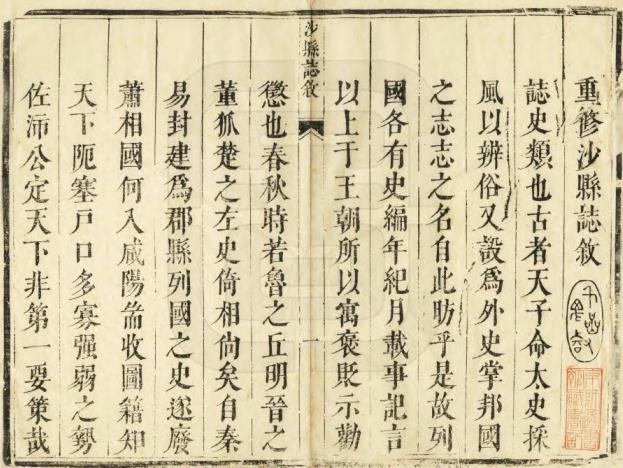 重修沙縣誌敘
誌史類也古者天子命太史採
風以辨俗又設爲外史掌邦國
之志志之名自此昉乎是故列
國各有史編年紀月載事記言
以上于王朝所以寓褒貶示勸
沙縣誌敘
一
懲也春秋時若魯之丘明晉之
董狐楚之左史倚相尙矣自秦
易封建爲郡縣列國之史遂廢
蕭相國何入咸陽耑收圖籍知
天下阨塞戸口多寡强弱之勢
佐沛公定天下非第一要策哉